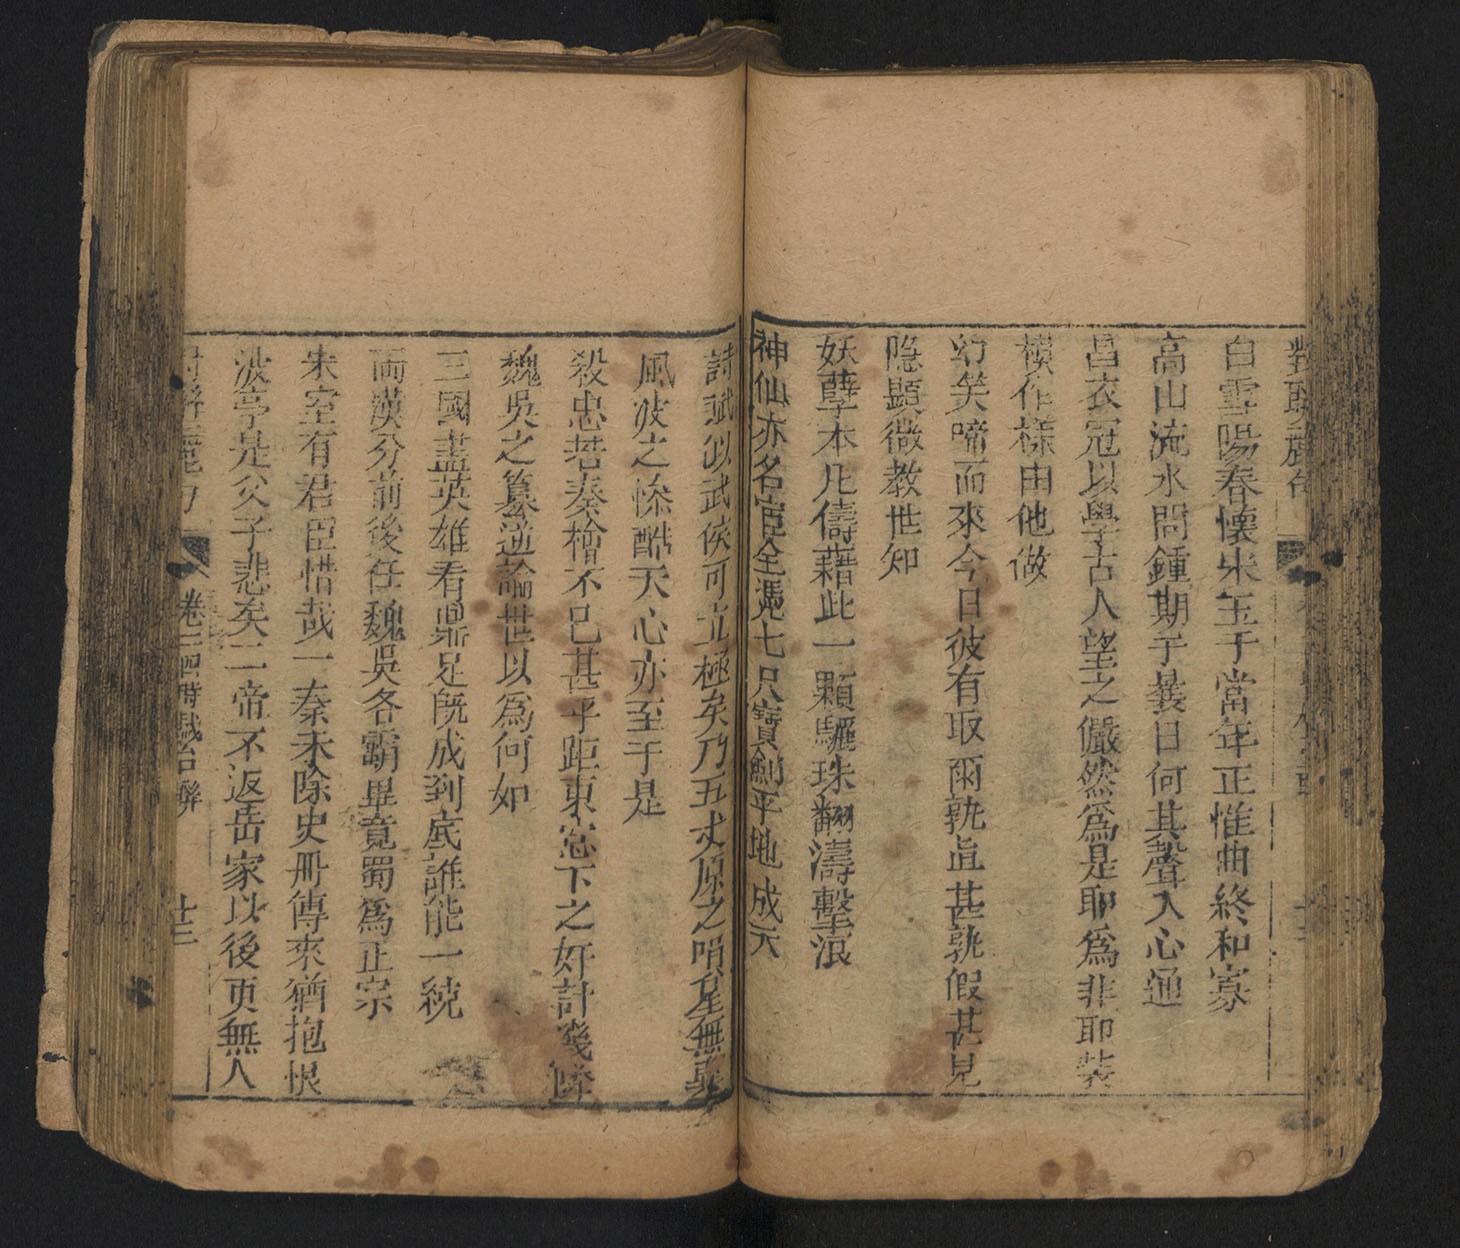 白雪陽春懷宋玉于當年正惟曲終和寡
高山流水問鍾期于曩日何其聲入心通
昌衣冠以學古人望之儼然爲是耶爲非耶裝
模作樣由他做
幻笑啼而來今日彼有取爾孰眞甚孰假甚見
隐顯微教世知
妖孽本凡儔藉此一顆驪珠翻濤擊浪
神仙亦名宦全憑七尺寶劍平地成天
詩賦似武侯可立極矣乃五丈原之
風波之慘酷天心亦至于是
殺忠若秦檜不已甚乎距東窓下之奸計幾
魏吳之篡逆論世以爲何如
三國盡英雄看鼎足旣成到底誰能一統
兩漢分前後任魏吳各霸畢竟蜀爲正宗
宋室有君臣惜哉一秦未除史册傳來猶抱恨
波亭是父子悲矣二帝不返岳家以後更無人
卷二 戲台聯 廿三